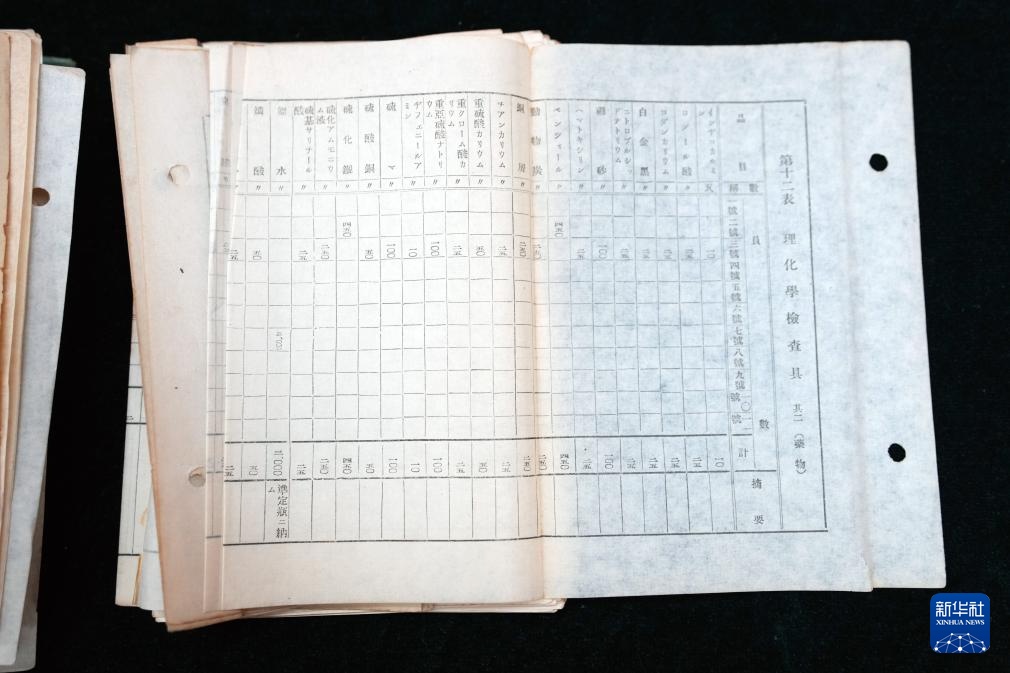 第十二表 理化學檢查具 其二（藥物）
品目
員數
稱數
一號
二號
三號
四號
五號
六號
七號
八號
九號
一〇號
計
摘要
インヂゴカルミン 瓦 一〇 一〇
ロゾール酸 〃 二五 二五
ロダンカリウム 〃 二五 二五
白金黑 〃 二五 二五
ニトロプルシッドナトリウム 〃 二五 二五
硼砂 〃 一〇〇 一〇〇
ヘマトキシリン 〃 二五 二五
ベンヂール 〃 四五〇 四五〇
動物炭 〃 二五〇 二五〇
銅屑 〃 二五〇 二五〇
チアンカリウム 〃 二五 二五
重硫酸カリウム 〃 五〇 五〇
重クローム酸カリウム 〃 二五 二五
重亞硫酸ナトリウム 〃 一〇〇 一〇〇
ヂフェニールアミン 〃 一〇 一〇
硫マ 〃 一〇〇 一〇〇
硫酸銅 〃 五〇 五〇
硫化鐵 〃 四五〇 四五〇
硫化アムモニウム液 〃 二五〇 二五〇
硫基サリチール酸 〃 二五 二五
水 〃 二、〇〇〇 二、〇〇〇 準定瓶ニ納ム
燐酸 〃 五〇 五〇
二五
新华社
XINHUA NEWS